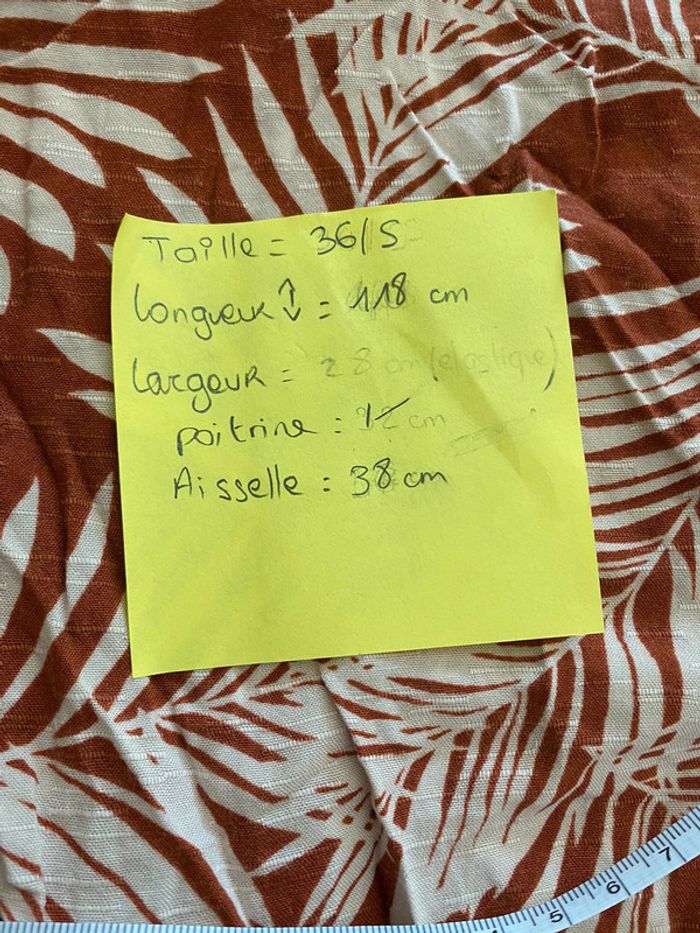 Taille = 36/S
Longueur ↕ = 118 cm
Largeur = 28 cm (élastique)
poitrine : cm
Aisselle : 38 cm
5 6 7